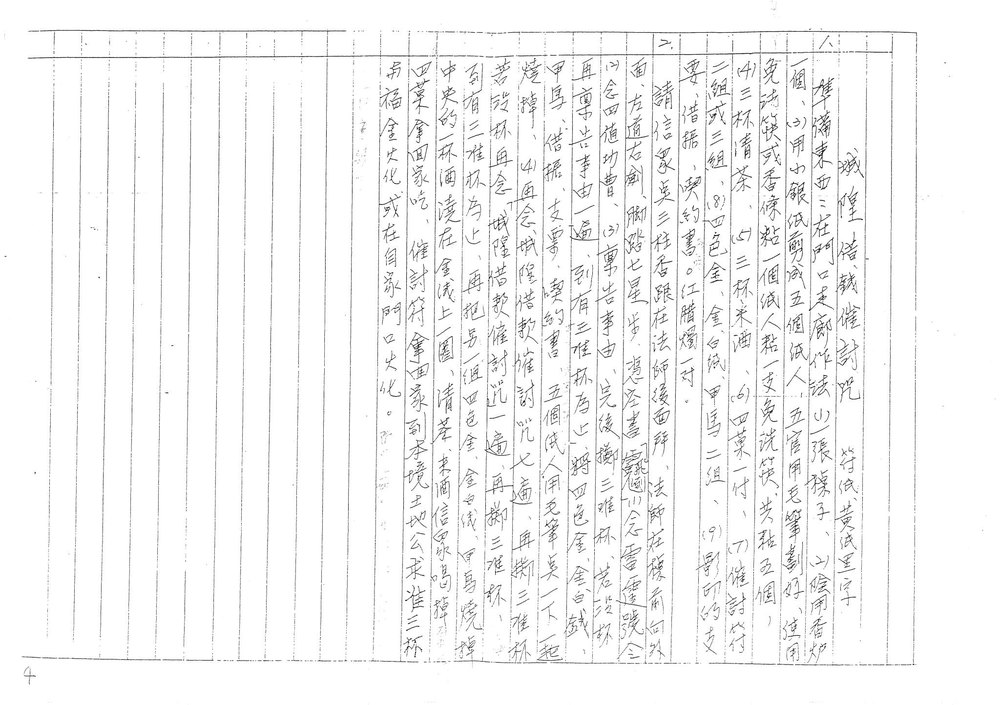 1.
城隍借錢催討咒　符纸、黄纸黑字
準備東西：在門口走廊作法(1)一張棹子、(2)陰用香炉
一個、(3)用小銀纸剪成五個纸人、五官用毛筆劃好、使用
免洗筷或香條粘一個纸人黏一支免洗筷、共黏五個，
(4)三杯清茶、(5)三杯米酒、(6)四菓一付、(7)催討符
二組或三組、(8)四色金、金、白纸、甲馬二組、(9)影印的支
票、借据、喫約書。江腊燭一对．
2.
請信眾吳三柱香跟在法師後面拜、法師在棹前向外
面、左道右劍、脚踏七星步、憑空書 (1)念雷霆號令
(2)念四值功曹、(3)稟告事由、完後擲三准杯、若没杯
再稟告事由一遍、到有三准杯為止、將四色金、金、白錢、
甲馬、借据、支票、喫約書、五個纸人用毛筆吳一下一起
燒掉、(4)再念城隍借款催討咒七遍、再擲三准杯
若没杯再念城隍借款催討咒一遍、再擲三准杯、
到有三准杯為止、再把另一組四色金、金白纸、甲馬燒掉
中央的一杯酒澆在金纸上一圈、清茶、米酒信眾喝掉
四菓拿回家吃、催討符拿回家到本境土地公求准三杯
与福金火化或在自家門口火化。
4